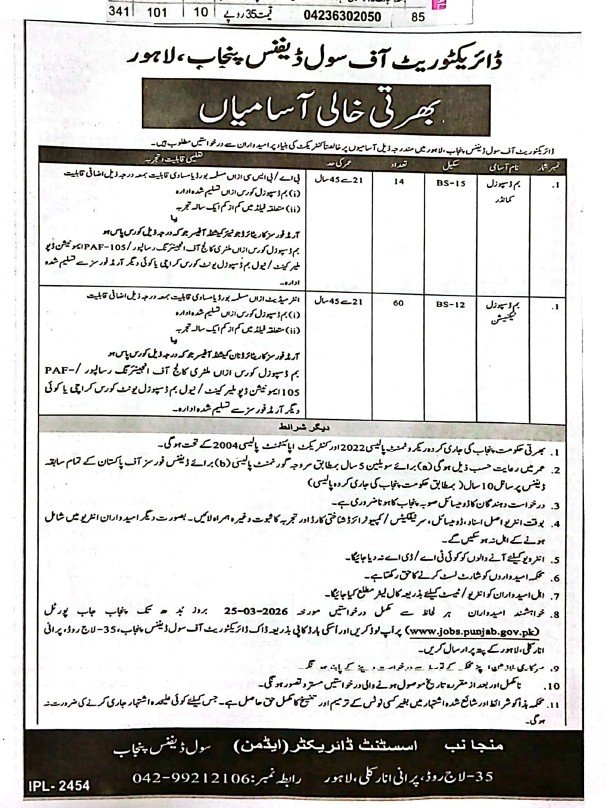 341 101 10 قیمت 35 روپے 04236302050 85
ڈائریکٹوریٹ آف سول ڈیفنس پنجاب، لاہور
بھرتی خالی آسامیاں
ڈائریکٹوریٹ آف سول ڈیفنس پنجاب، لاہور میں مندرجہ ذیل آسامیوں پر خالصتاً کنٹریکٹ کی بنیاد پر امیدواران سے درخواستیں مطلوب ہیں۔
نمبر شمار نام آسامی سکیل تعداد عمر کی حد تعلیمی قابلیت و تجربہ
1. بم ڈسپوزل کمانڈر BS-15 14 21 سے 45 سال
بی اے/ بی ایس سی ازاں مسلمہ بورڈ یا مساوی قابلیت بمعہ درجہ ذیل اضافی قابلیت
(i) بم ڈسپوزل کورس ازاں تسلیم شدہ ادارہ
(ii) متعلقہ فیلڈ میں کم از کم ایک سالہ تجربہ
یا
آرمڈ فورسز کا ریٹائرڈ جونیئر کمیشنڈ آفیسر جو کہ درجہ ذیل کورس پاس ہو
بم ڈسپوزل کورس ازاں ملٹری کالج آف انجینئرنگ رسالپور/ PAF-105 ایمونیشن ڈپو
ملیر کینٹ/ نیول بم ڈسپوزل یونٹ کورس کراچی یا کوئی دیگر آرمڈ فورسز سے تسلیم شدہ
ادارہ۔
1. بم ڈسپوزل ٹیکنیشن BS-12 60 21 سے 45 سال
انٹرمیڈیٹ ازاں مسلمہ بورڈ یا مساوی قابلیت بمعہ درجہ ذیل اضافی قابلیت
(i) بم ڈسپوزل کورس ازاں تسلیم شدہ ادارہ
(ii) متعلقہ فیلڈ میں کم از کم ایک سالہ تجربہ
آرمڈ فورسز کا ریٹائرڈ نان کمیشنڈ آفیسر جو کہ درجہ ذیل کورس پاس ہو
بم ڈسپوزل کورس ازاں ملٹری کالج آف انجینئرنگ رسالپور/ PAF-
105 ایمونیشن ڈپو ملیر کینٹ/ نیول بم ڈسپوزل یونٹ کورس کراچی یا کوئی
دیگر آرمڈ فورسز سے تسلیم شدہ ادارہ۔
دیگر شرائط
1. بھرتی حکومت پنجاب کی جاری کردہ ریکروٹمنٹ پالیسی 2022 اور کنٹریکٹ اپائنٹمنٹ پالیسی 2004 کے تحت ہوگی۔
2. عمر میں رعایت حسب ذیل ہوگی (a) برائے سویلین 5 سال بمطابق مروجہ گورنمنٹ پالیسی (b) برائے ڈیفنس فورسز آف پاکستان کے تمام سابقہ
ڈیفنس پرسنلز 10 سال (بمطابق حکومت پنجاب کی جاری کردہ پالیسی)
3. درخواست دہندگان کا ڈومیسائل صوبہ پنجاب کا ہونا ضروری ہے۔
4. بوقت انٹرویو اصل اسناد، ڈومیسائل، سرٹیفکیٹس/ کمپیوٹرائزڈ شناختی کارڈ اور تجربہ کا ثبوت وغیرہ ہمراہ لائیں۔ بصورت دیگر امیدواران انٹرویو میں شامل
ہونے کے اہل نہ ہوسکیں گے۔
5. انٹرویو کیلئے آنے والوں کو کوئی ٹی اے/ ڈی اے نہ دیا جائیگا۔
6. محکمہ امیدواروں کو شارٹ لسٹ کرنے کا حق رکھتا ہے۔
7. اہل امیدواران کو انٹرویو/ ٹیسٹ کیلئے بذریعہ کال لیٹر مطلع کیا جائیگا۔
8. خواہشمند امیدواران ہر لحاظ سے مکمل درخواستیں مورخہ 25-03-2026 بروز بدھ تک پنجاب جاب پورٹل
(www.jobs.punjab.gov.pk) پر اپ لوڈ کریں اور اسکی ہارڈ کاپی بذریعہ ڈاک ڈائریکٹوریٹ آف سول ڈیفنس پنجاب، 35-لاج روڈ، پرانی
انارکلی، لاہور کے پتہ پر ارسال کریں۔
9. سرکاری ملازمین اپنے محکمہ کے توسط سے درخواست دینے کے پابند ہونگے۔
10. نامکمل اور بعد از مقررہ تاریخ موصول ہونے والی درخواستیں مسترد تصور ہونگی۔
11. محکمہ ہذا کو شرائط اور شائع شدہ اشتہار میں بغیر کسی نوٹس کے ترمیم اور تنسیخ کا مکمل حق حاصل ہے۔ جس کیلئے کوئی علیحدہ اشتہار جاری کرنے کی ضرورت نہ
ہوگی۔
منجانب اسسٹنٹ ڈائریکٹر (ایڈمن) سول ڈیفنس پنجاب
35-لاج روڈ، پرانی انارکلی، لاہور رابطہ نمبر: 042-99212106
IPL-2454